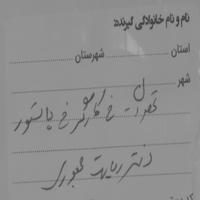 نام و نام خانوادگی گیرنده:
استان شهرستان
شهر
تهران خ کارگر خ پاستور
دفتر ریاست جمهوری